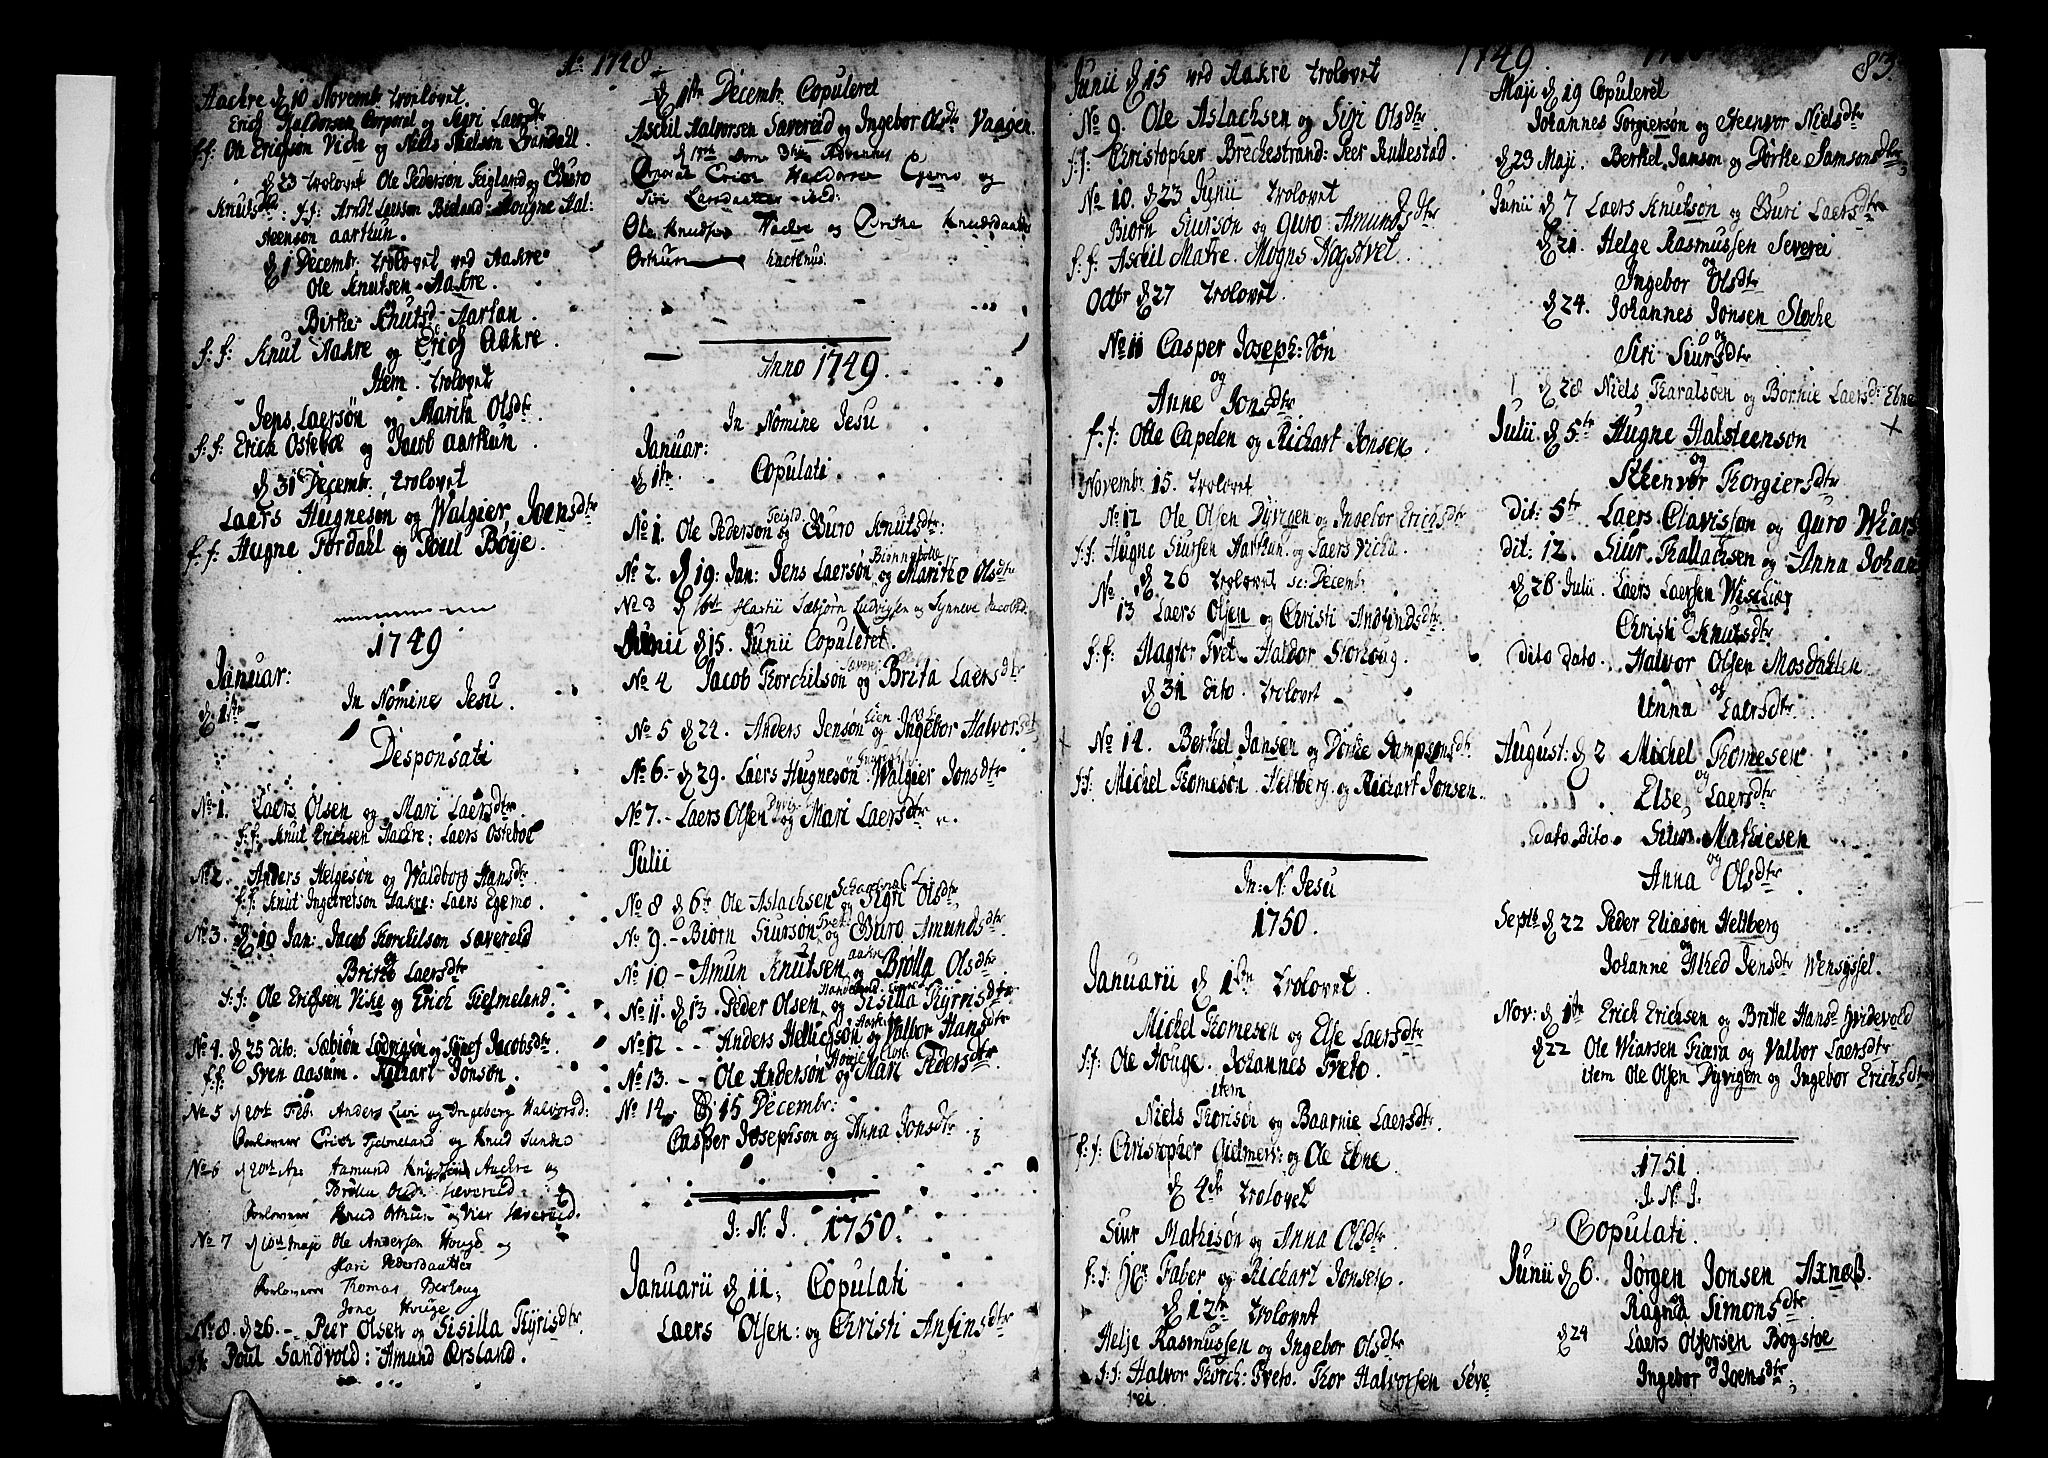 Ao 1748
Aackre d 10 Novembr trolovet.
Erich Haldorsen Corporal og Sigri Laersdtr
f:f: Ole Erichson Viche og Niels Nielson
d 23 trolovet Ole Pederson Feigland og Guro
Knutsdtr: f:f: Arndt Laerson : Hougne Hal:
steenson aarthun.
d 1 Decembr. trolovet ved Aakre
Ole Knutsen Aakre.
og
Birke Knutsd. Aartun.
f:f: Knut Aakre og Erich Aakre.
Item. trolovet
Jens Laersøn og Marite Olsdtr.
f:f: Erich Ostebøe og Jacob aarthun.
d 31 Decembr, trolovet
Laers Hugneson og Walgier Joensdtr
f:f: Hugne Fordahl og Poul Boye.
1749
Januar:
d 1ste
In Nomine Jesu.
Desponsati
No 1. Laers Olsen og Mari Laersdtr.
f:f: Knut Erichsen Aackre: Laers Ostebøe
No 2. Anders Helgesøn og Waldborg Hansdtr.
f:f: Knut Ingebretson Aakre: Laers Egemo.
No 3. d 19 Jan: Jacob Torchilson Sævereid
og
Britte Laersdtr
f:f: Ole Erichsen Viche og Erich Fielmeland.
No 4. d 25 dito: Sæbiøn Lodvigsøn og Synef Jacobsdtr.
f:f: Sven aasum. Richart Jonson.
No 5 d 20de Feb. Anders Lien og Ingeborg Halvorsd:
Forlovere Erich Fielmeland og Knud Sunde
No 6 d 20de Ap: Aamund Knutsen Aackre og
Brølla Olsd. Sævereid.
Forlovere Knud Orthun og Wier Sævereid.
No 7 d 10de Maji Ole Andersen Houge og
Mari Pedersdaatter
Forlovere Thomas Berhoug
Jone Houge
No 8. d 26. - Peer Olsen og Sisilla Tyrisdtr.
f:f: Poul Sandvold: Amund Ersland.
d 1ste Decembr. Copuleret
Aschil Halvorsen Sævereid og Ingebor Olsdtr Vaagen.
d 15de Dom 3tia Adventus
Corporal Erich Haldorsen Egemo og
Siri Larsdaatter ibid:
Ole Knudsen Aachre og Birthe Knudsdaatter
Orthun
Anno 1749.
In Nomine Jesu
Januar:
d 1ste. Copulati.
No 1. Ole Pederson Feigld og Guro Knutsdtr:
No 2. d 19. Jan: Jens Laersøn og Marithe Olsdtr
No 3 d 16de Martii Sæbjørn Ludvigsen og Synneve Jacobsd.
Junii d 15. Junii Copuleret.
No 4 Jacob Torchilson og Brita Laersdtr
No 5 d 22. Anders Jensøn Lien og Ingebor Halvorsdtr
No 6 - d 29. Laers Hugnesøn Walgier Jonsdtr
No 7. - Laers Olsen og Mari Laersdtr
Julii
No 8 d 6te Ole Aslachsen og Sigri Olsdtr.
No 9. - Biorn Siurson Tvet og Guro Amundsdtr.
No 10 - Amun Knutsen aakre og Brölla Olsdtr
No 11. d 13. Peder Olsen og Sisilla Tyrrisdtr
No 12 - - Anders Hellichson og Valbor Hansdtr
No 13. - - Ole Andersøn og Mari Pedersdtr.
No 14. d 15 Decembr:
Casper Josephson og Anna Jonsdtr
J: N. J. 1750.
Januarii d 11, Copulati
Laers Olsen: og Christi Anfinsdtr
1749. 83.
Junii d 15 ved Aakre trolovet
No 9. Ole Aslachsen og Siri Olsdtr
f:f: Christopher Brechestrand: Peer Rullestad
No 10. d 23 Junii trolovet
Biorn Siurson og Guro Amundsdtr
f:f: Aschil Matre. Mogns Hogstvet.
Octbr d 27 trolovet.
No 11 Casper Joseph: Søn
og
Anne Jonsdtr
f:f: Otte Capelen og Richart Jonsen.
Novembr 15. trolovet
No 12 Ole Olsen Dyvigen og Ingebor Erichsdtr
f:f: Hugne Siursen Aarthun. og Laers Vicha.
d 26 trolovet sc: Decembr
No 13 Laers Olsen og Christi Andfindsdtr.
f:f: Hagtor Tvet. Haldor Storhoug.
d 31 dito. trolovet
No 14. Berthel Jansen og Dorite Sampsonsdtr.
f:f: Michel Thomeson Heltberg og Richart Jonsen.
In: N: Jesu
1750.
Januarii d 1ste trolovet.
Michel Thomesen og Else Laersdtr
f:f: Ole Houge. Johannes Tveto.
item
Niels Thorisøn og Baarnie Laersdtr.
f:f: Christopher og Ole Ebne.
d 4de trolovet
Siur Mathisøn og Anna Olsdtr.
f:f: Hr Faber og Richart Jonsen.
d 12te trolovet
Helje Rasmussen og Ingebor Olsdtr
f:f: Halvor Torch: Tveto. Thor Halvorsen Seve
rei.
Maji d 19 Copuleret
Johannes Torgiersøn og Steenvor Nielsdtr
d 23 Maji. Berthel Janson og Dorthe Samsonsdtr
Junii d 7 Laers Knutsøn og Guri Laersdtr
d 21. Helge Rasmussen Severei
og
Ingebor Olsdtr
d 24. Johannes Jonsen Støche
og
Siri Siursdtr
d 28 Niels Haralsøen og Børnie Laersd: Ebne
Julii d 5te Hugne Halsteenson
og
Steenvør Torgiersdtr
Dit: 5te Laers Clavistan og Guro Wiars
Dit: 12. Siur Thallachsen og Anna Johan
d 26 Julii. Laers Laersen
og
Christi Knutsdtr
dito dato. Halvor Olsen Mosdahlen
og
Anna Laersdtr.
August: d 2 Michel Thomesen
og
Else Laersdtr
Dato dito. Siur Mathiesen
og
Anna Olsdtr.
Septb d 22 Peder Eliasøn Heltberg
og
Johanne Jensdtr Wensyssel.
Nov: d 1te Erick Erichsen og Britte Hansd Hvidevold
d 22 Ole Wiarsen Fiæra og Valbor Laersdtr
item Ole Olsen Dyvigen og Ingebor Erichsdtr
1751.
J. N. J.
Copulati.
Junii d 6. Jørgen Jonsen Axnæs.
Ragna Simonsdtr
d 24 Laers Olsersen Bogstøe
og
Ingebor Joensdtr,